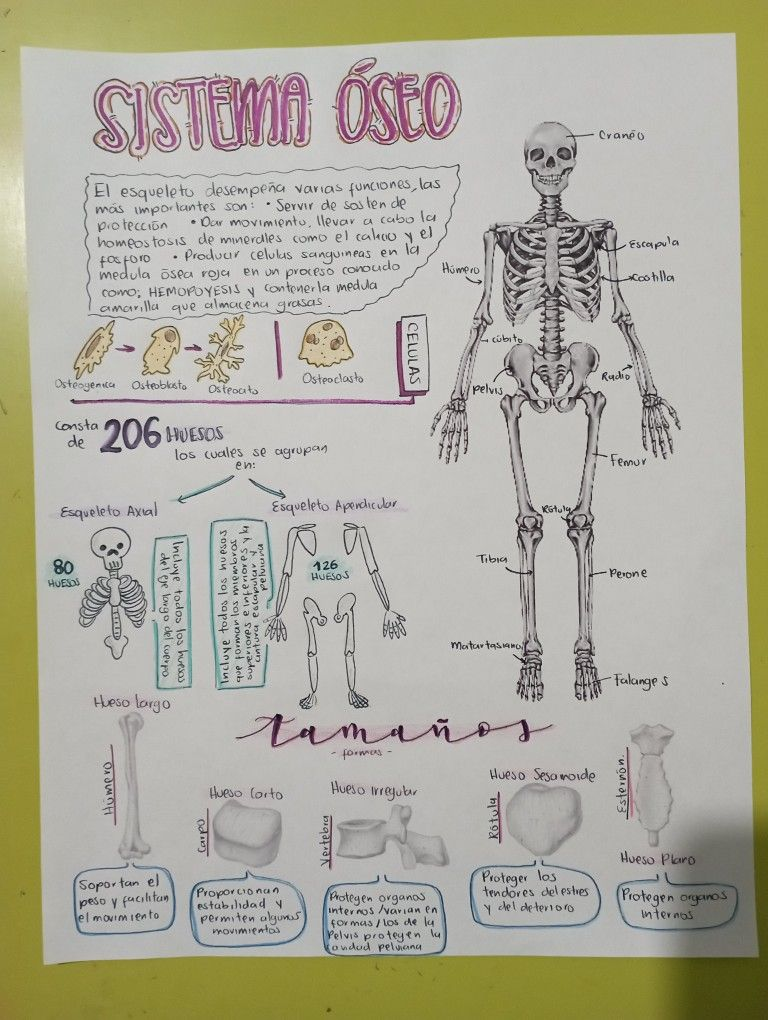 SISTEMA ÓSEO
El esqueleto desempeña varias funciones, las
más importantes son: • Servir de sosten de
protección • Dar movimiento, llevar a cabo la
homeostosis de minerales como el calcio y el
fosforo • Producir celulas sanguineas en la
medula ósea roja en un proceso conocido
como; HEMOPOYESIS y contener la medula
amarilla que almacena grasas.
Osteogenica
Osteoblasto
Osteocito
Osteoclasto
CELULAS
Consta
de 206 HUESOS
los cuales se agrupan
en:
Esqueleto Axial
80
HUESOS
Incluye todos los huesos
del eje largo del cuerpo
Esqueleto Apendicular
126
HUESOS
Incluye todos los huesos
que forman los miembros
superiores e inferiores y la
cintura escapular y
pelviana
Cranéo
Escapula
Húmero
Costilla
cúbito
Radio
Pelvis
Femur
Rótula
Tibia
Perone
Matartasiano
Falanges
tamaños
- formas -
Hueso largo
Húmero
Soportan el
peso y facilitan
el movimiento
Hueso Corto
Carpo
Proporcionan
estabilidad y
permiten algunos
movimientos
Hueso Irregular
Vertebra
Protegen organos
internos /varian en
formas/los de la
Pelvis protegen la
cavidad pelviana
Hueso Sesamoide
Rótula
Proteger los
tendores del estres
y del deterioro
Esternón.
Hueso Plano
Protegen organos
internos